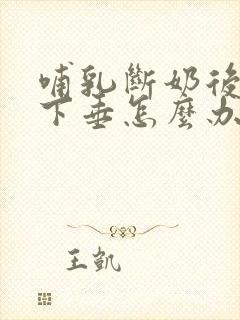 哺乳斷奶後
下垂怎麼办
王凱